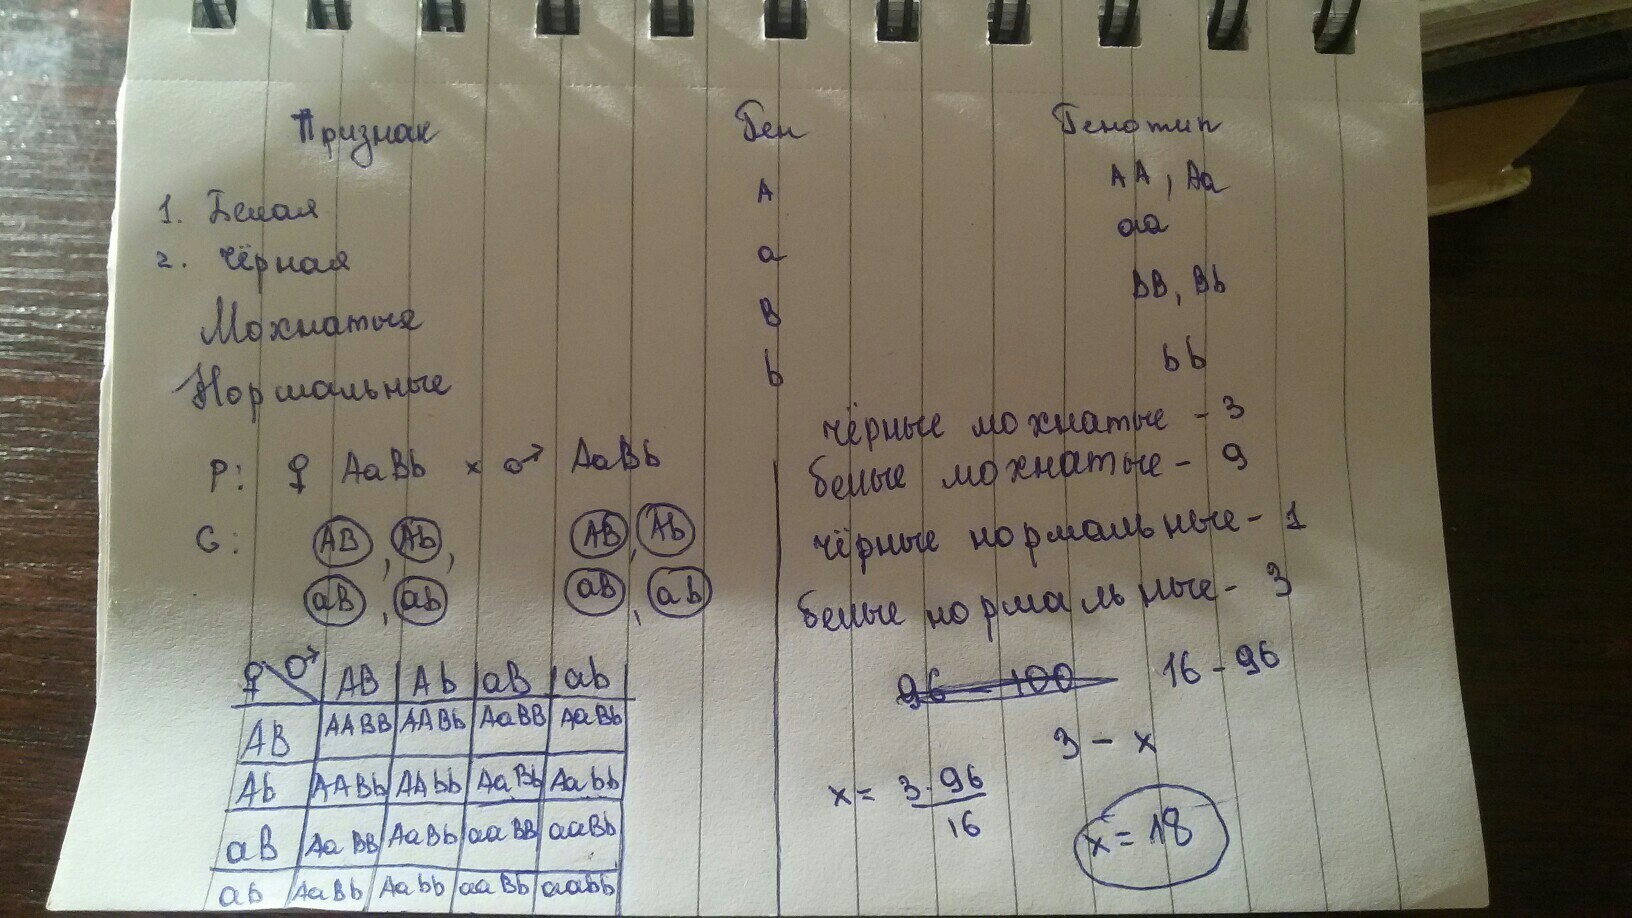 Признак Ген Генотип
1. Белая A AA, Aa
2. чёрная a aa
Мохнатые B BB, Bb
Нормальные b bb
P: ♀ AaBb × ♂ AaBb
G: AB, Ab, AB, Ab
aB, ab aB, ab
♀ ♂ AB Ab aB ab
AB AABB AABb AaBB AaBb
Ab AABb AAbb AaBb Aabb
aB AaBB AaBb aaBB aaBb
ab AaBb Aabb aaBb aabb
чёрные мохнатые - 3
белые мохнатые - 9
чёрные нормальные - 1
белые нормальные - 3
96 - 100 16 - 96
3 - x
x = 3·96
16
x = 18